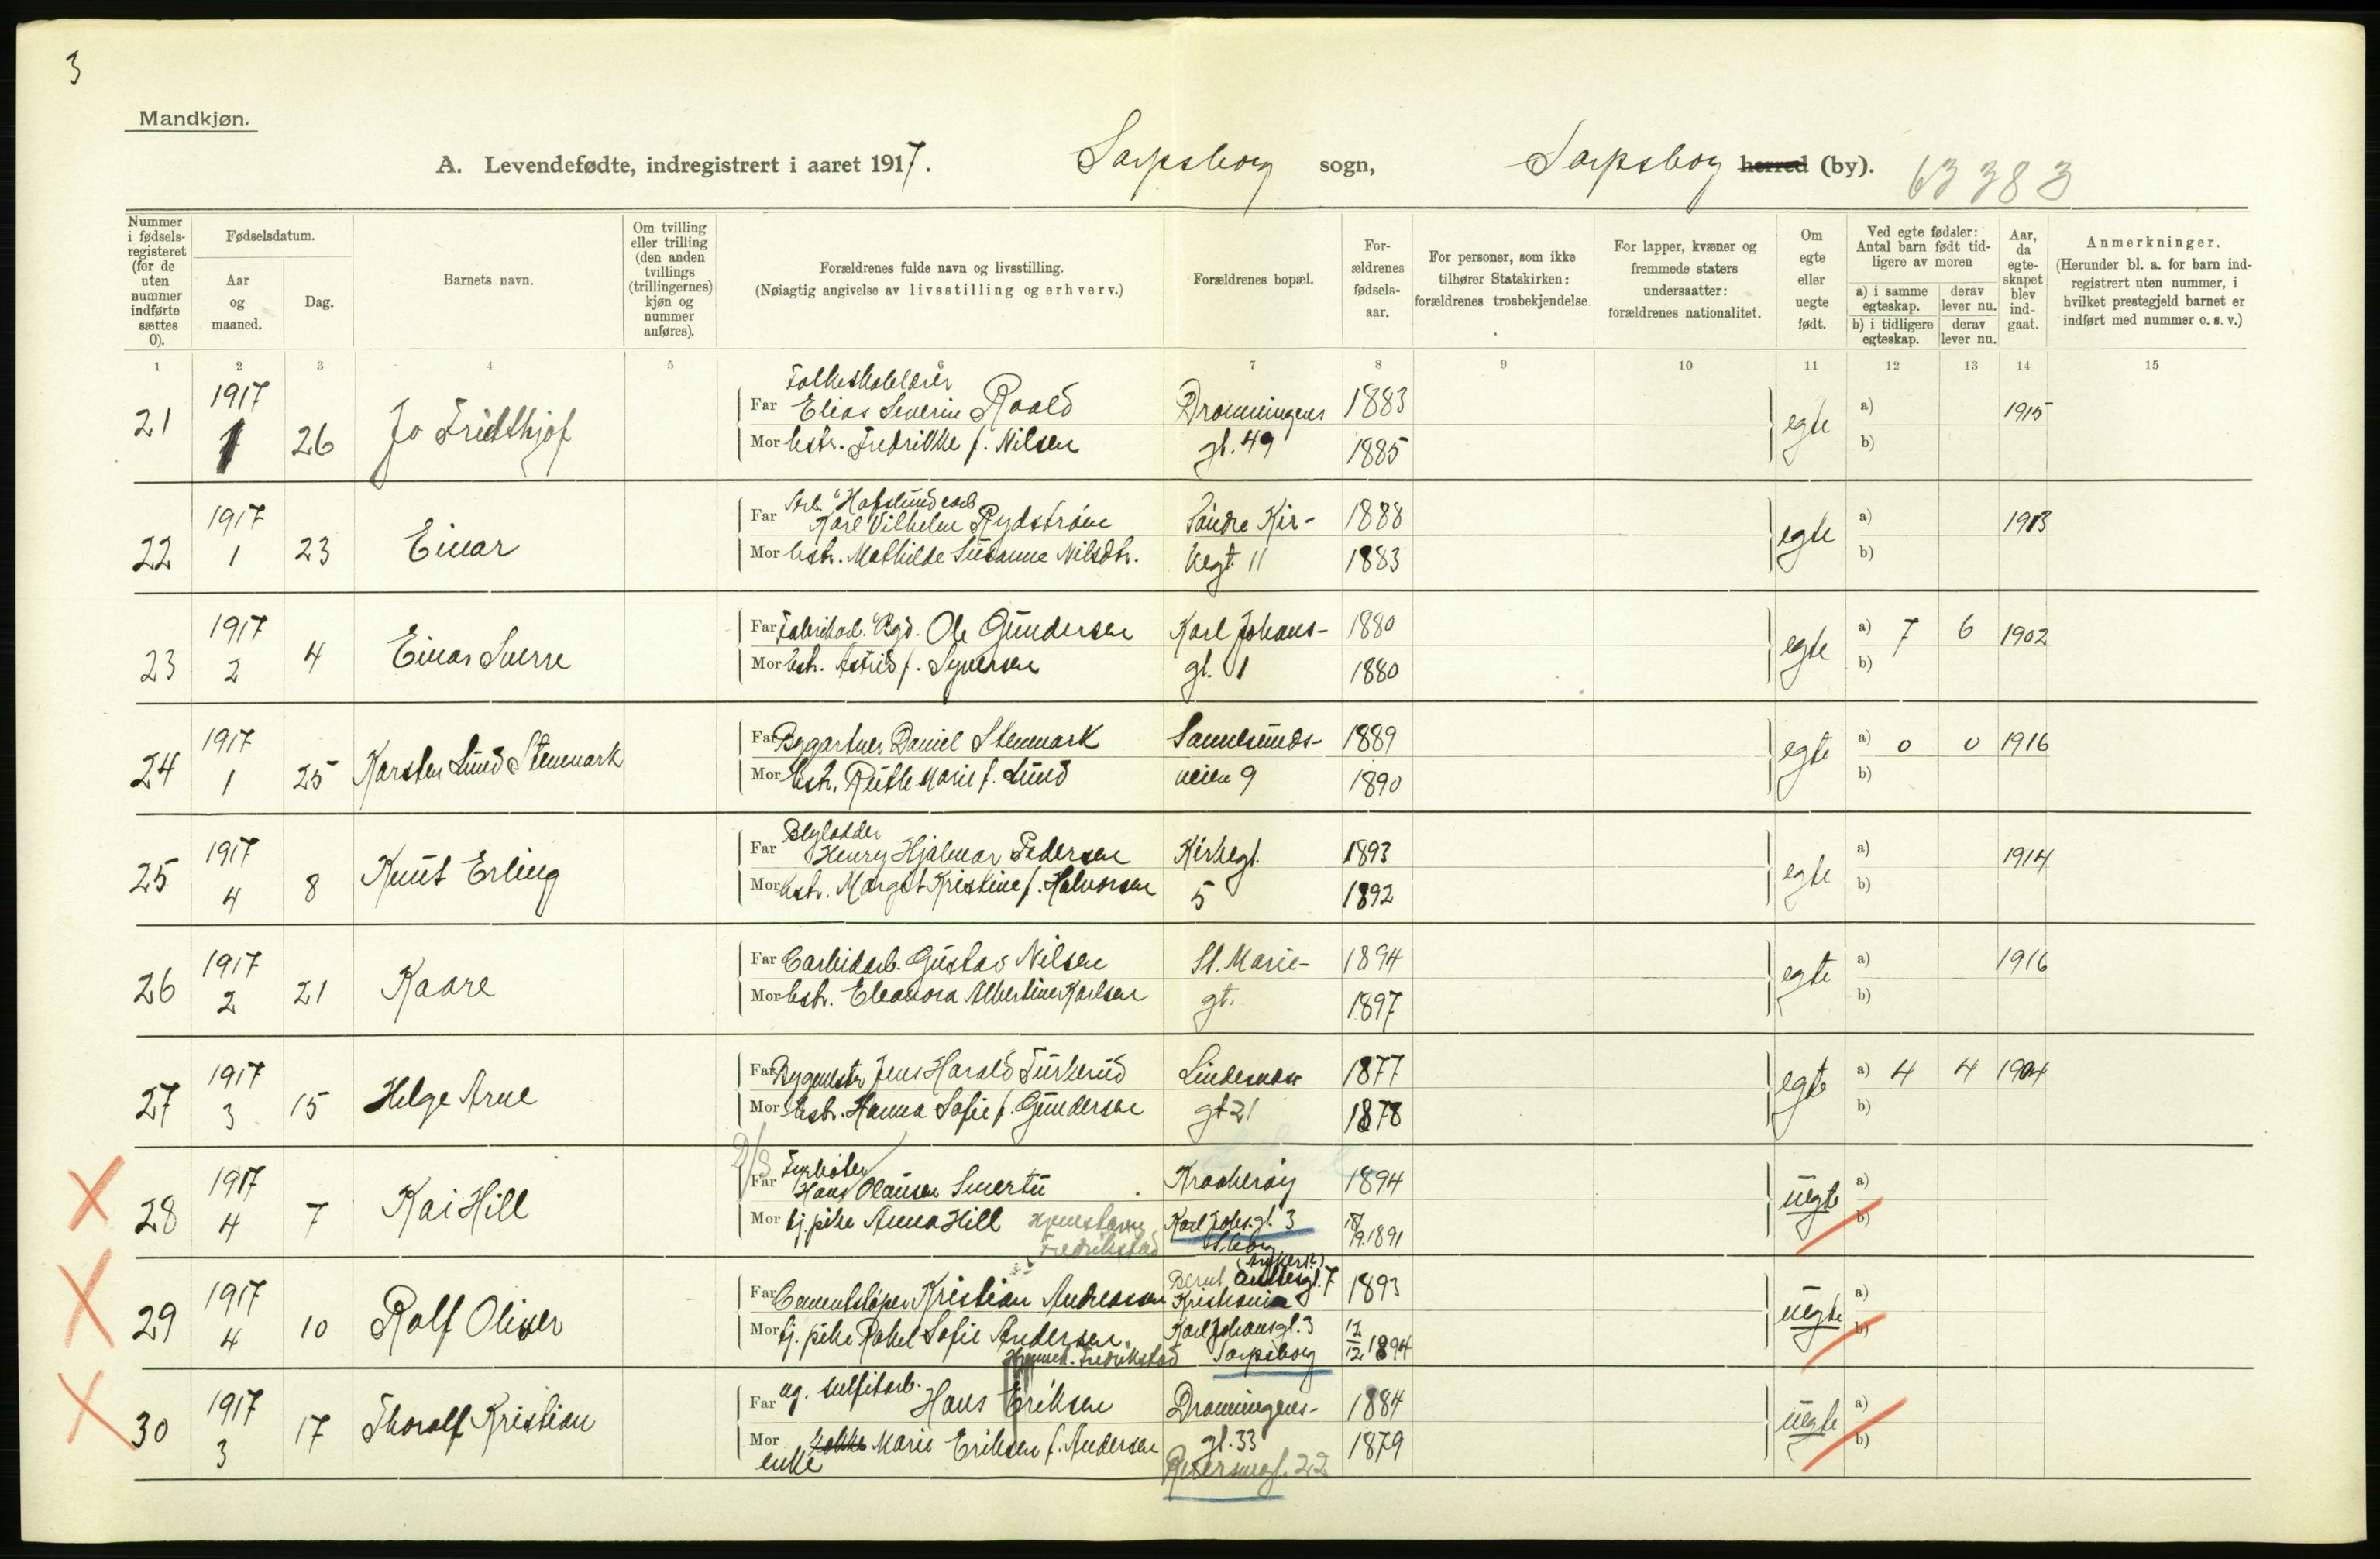 3
Mandkjøn.
A. Levendefødte, indregistrert i aaret 1917. Sarpsborg sogn, Sarpsborg herred (by). 63383
Nummer i fødselsregisteret (for de uten nummer indførte sættes 0).
Fødselsdatum.
Aar og maaned.
Dag.
Barnets navn.
Om tvilling eller trilling (den anden tvillings (trillingernes) kjøn og nummer anføres).
Forældrenes fulde navn og livsstilling.
(Nøiagtig angivelse av livsstilling og erhverv.)
Forældrenes bopæl.
Forældrenes fødselsaar.
For personer, som ikke tilhører Statskirken: forældrenes trosbekjendelse.
For lapper, kvæner og fremmede staters undersaatter: forældrenes nationalitet.
Om egte eller uegte født.
Ved egte fødsler: Antal barn født tidligere av moren
a) i samme egteskap. derav lever nu.
b) i tidligere egteskap. derav lever nu.
Aar, da egteskapet blev indgaat.
Anmerkninger.
(Herunder bl. a. for barn indregistrert uten nummer, i hvilket prestegjeld barnet er indført med nummer o. s. v.)
1 2 3 4 5 6 7 8 9 10 11 12 13 14 15
Folkeskolelærer
21 1917 1 26 Jo Fridthjof Far Elias Severin Roald Dronningens 1883 egte a) 1915
Mor hstr. Fredrikke f. Nilsen gt. 49 1885 b)
Arb. Hafslund carb
22 1917 1 23 Einar Far Karl Vilhelm Rydstrøm Søndre Kir- 1888 egte a) 1913
Mor hstr. Mathilde Susanne Nilsdtr. kegt. 11 1883 b)
23 1917 2 4 Einar Sverre Far Fabrikarb. Bgd. Ole Gundersen Karl Johans- 1880 egte a) 7 6 1902
Mor hstr. Astrid f. Syversen gt. 1 1880 b)
24 1917 1 25 Karsten Lund Stenmark Far Bygartner Daniel Stenmark Sannesunds- 1889 egte a) 0 0 1916
Mor hstr. Ruth Marie f. Lund veien 9 1890 b)
Blylodder
25 1917 4 8 Knut Erling Far Henry Hjalmar Pedersen Kirkegt. 1893 egte a) 1914
Mor hstr. Margit Kristine f. Halvorsen 5 1892 b)
26 1917 2 21 Kaare Far Carbidarb. Gustav Nilsen St. Marie- 1894 egte a) 1916
Mor hstr. Eleonora Albertine Karlsen gt. 1897 b)
27 1917 3 15 Helge Arne Far Bygmester Jens Harald Turkerud Lindemans 1877 egte a) 4 4 1904
Mor hstr. Hanna Sofie f. Gundersen gt 21 1878 b)
Fyrbøter
28 1917 4 7 Kai Hill Far Hans Olausen Smertu Kraakerøy 1894 uegte a)
Mor tj. pike Anna Hill Karl Johs. gt. 3 1891 b)
Fredrikstad S.borg
29 1917 4 10 Rolf Oliver Far Cementstøper Kristian Andreassen Bernt Ankersgt. 7 Kristiania 1893 uegte a)
Mor tj. pike Rakel Sofie Andersen Karl Johansgt. 3 12/12 1894 b)
Fredrikstad Sarpsborg
ug. sulfitarb.
30 1917 3 17 Thoralf Kristian Far Hans Eriksen Dronningens- 1884 uegte a)
Mor enke Marie Eriksen f. Andersen gt. 33 1879 b)
22